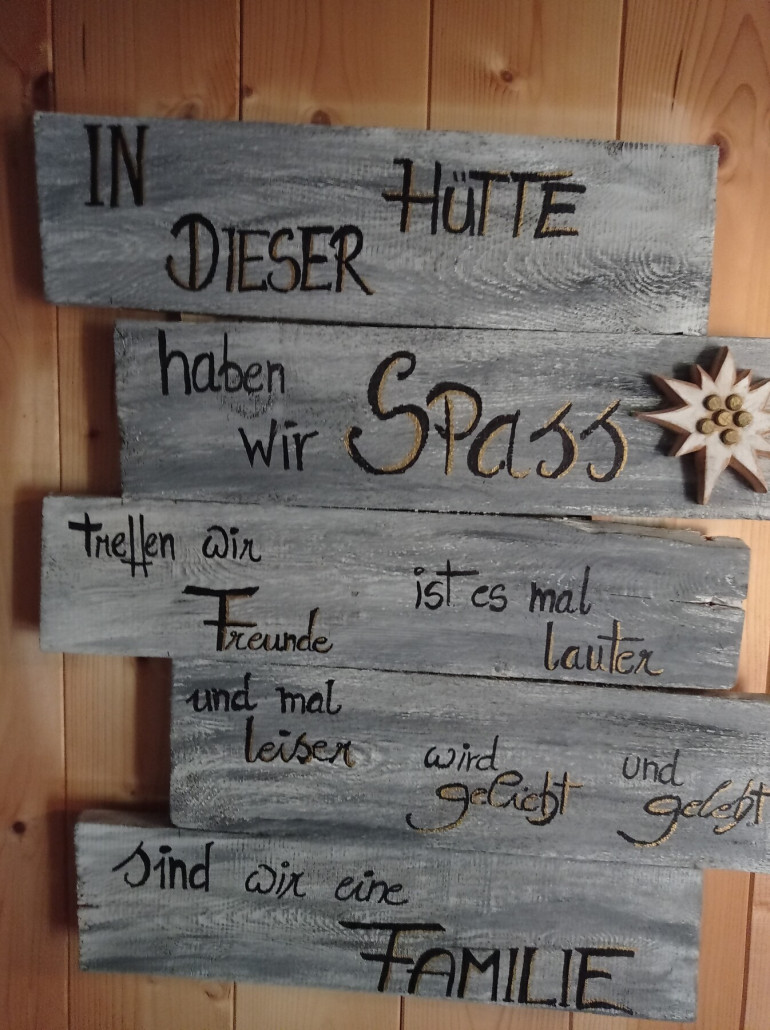 IN
HÜTTE
DIESER
haben
wir Spass
treffen wir
Freunde
ist es mal
lauter
und mal
leiser
wird
geliebt
und
gelebt
sind wir eine
FAMILIE